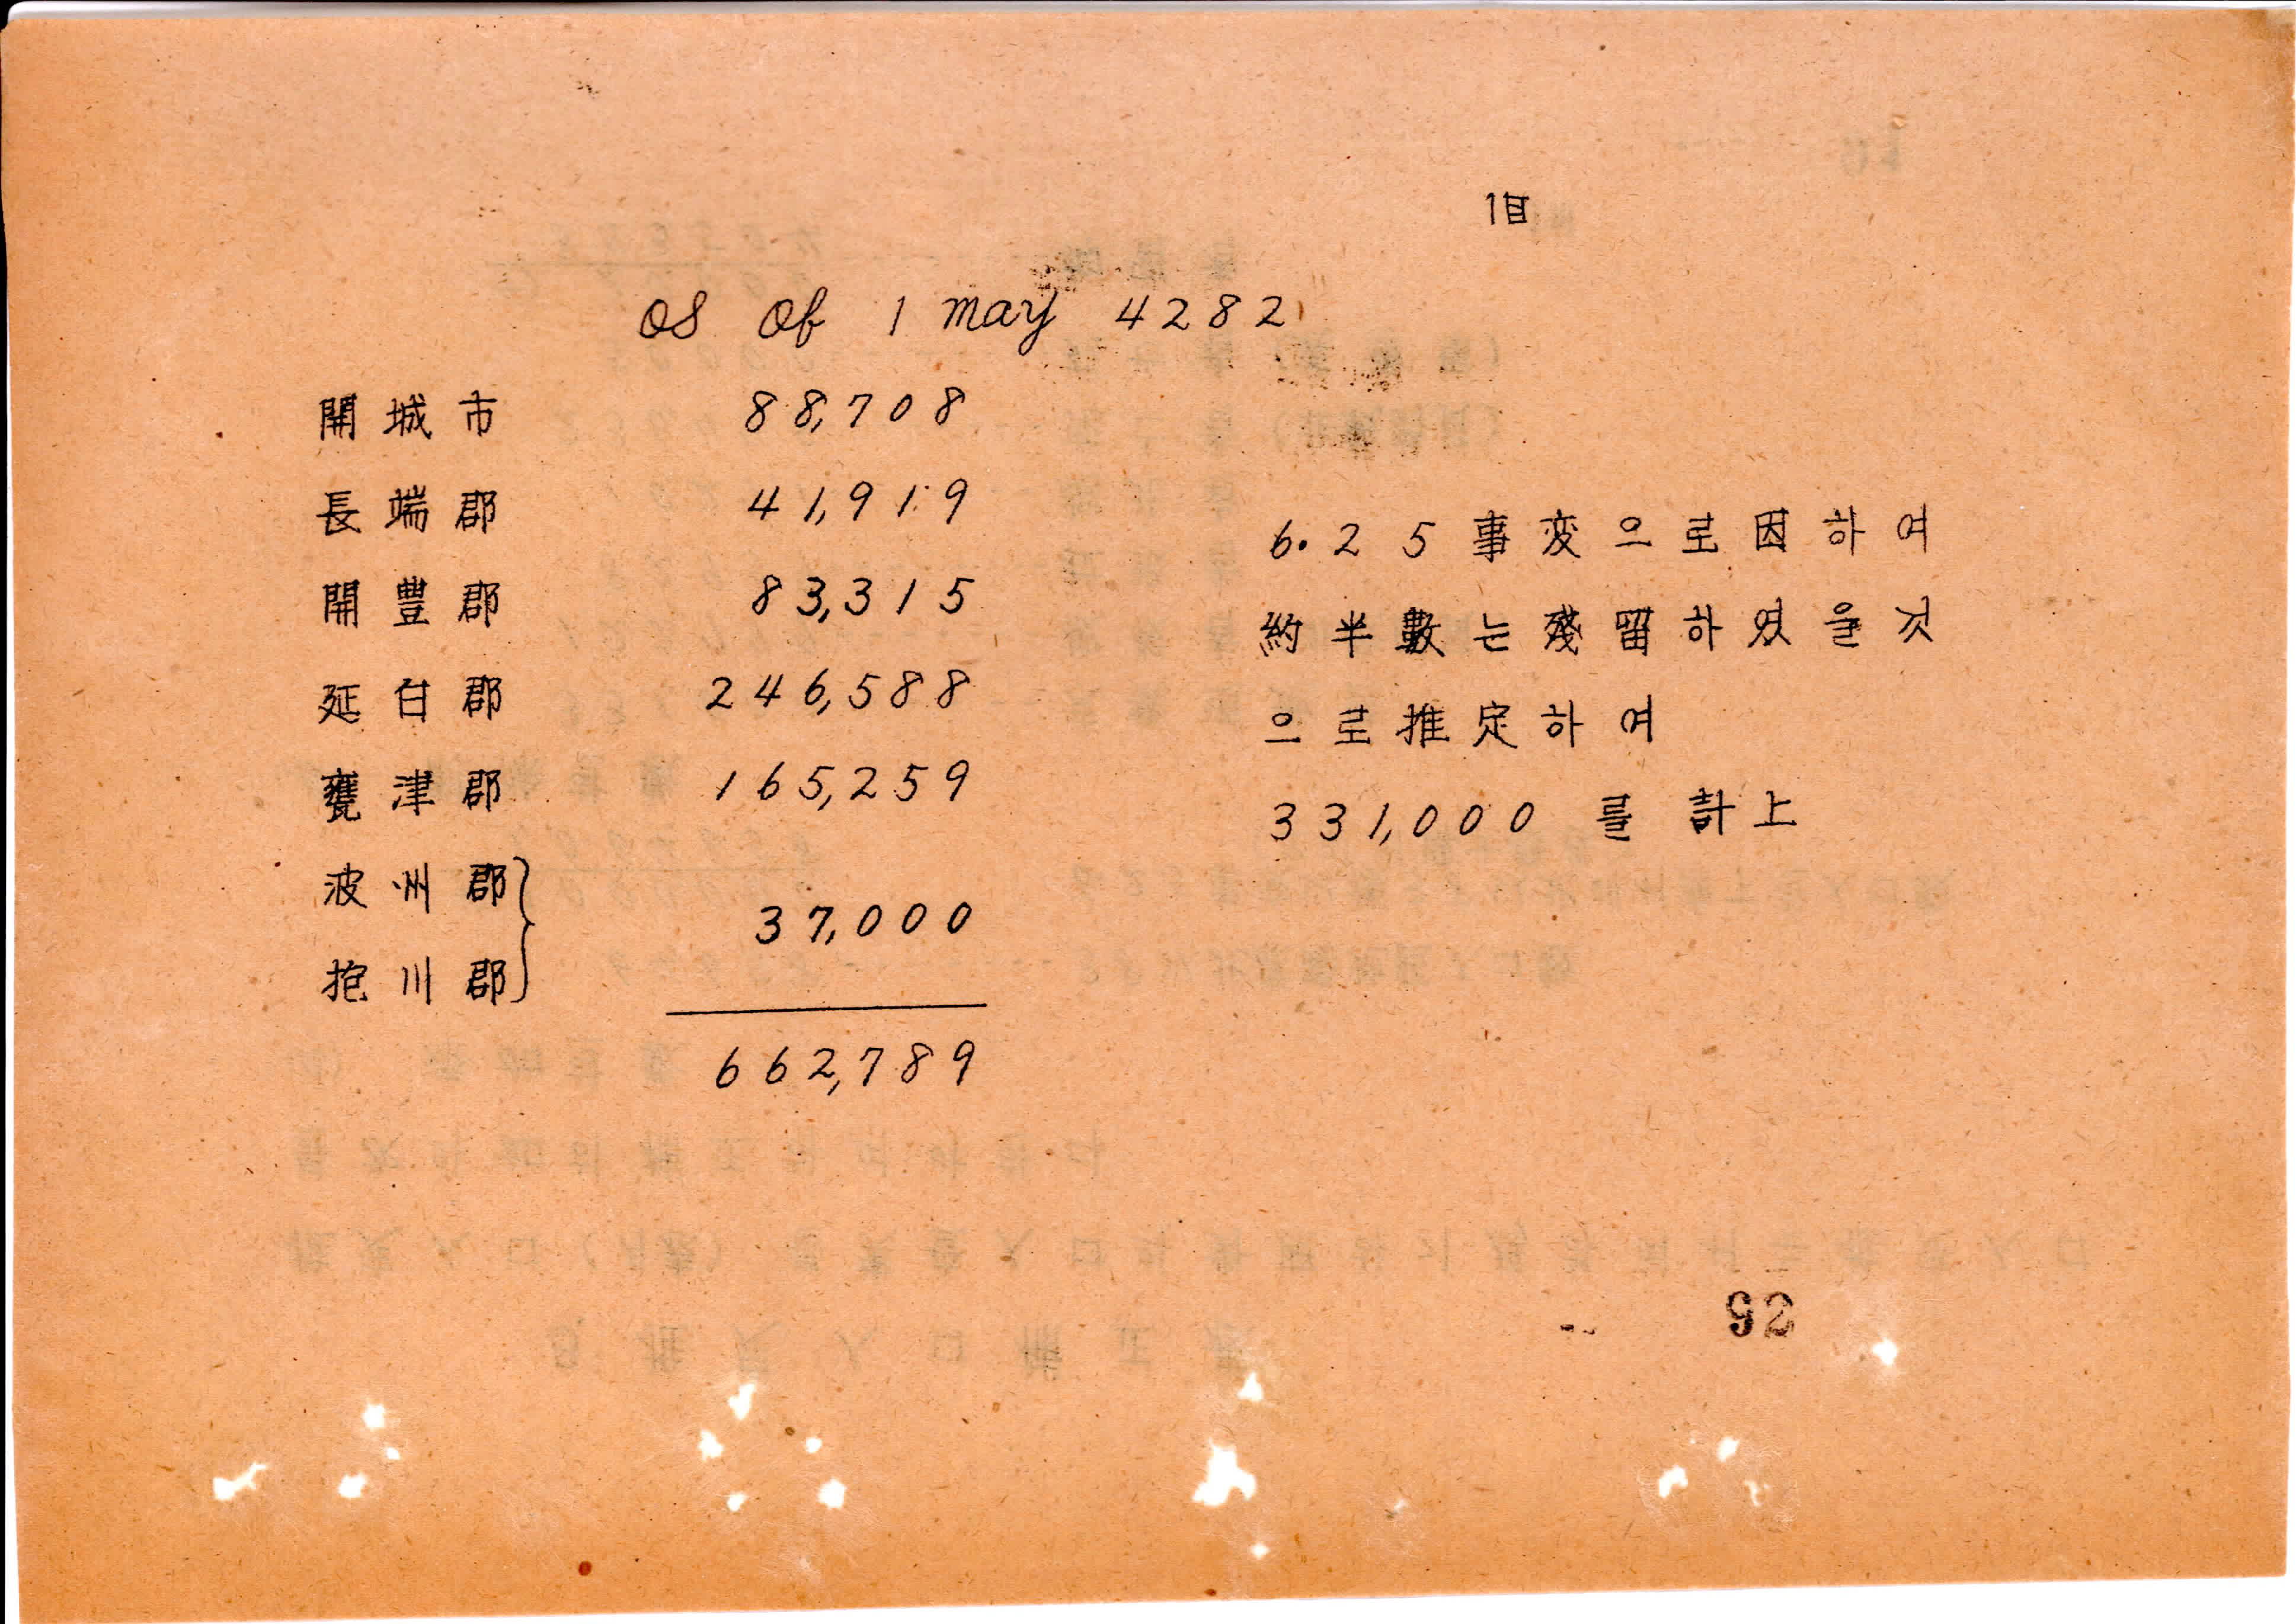 1目
os of 1 may 4282
開城市 88,708
長端郡 41,919
開豊郡 83,315
延白郡 246,588
甕津郡 165,259
波州郡
抱川郡 37,000
662,789
6.25事変으로因하여
約半數는殘留하였을것
으로推定하여
331,000 를 計上
92